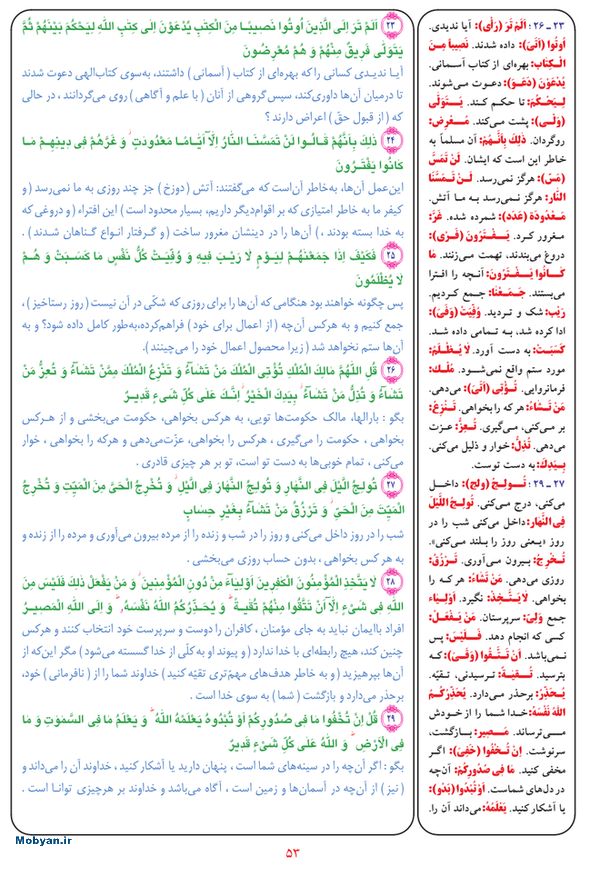 ۲۳ اَلَمْ تَرَ اِلَى الَّذينَ اُوتُوا نَصيبًا مِنَ الْكِتٰبِ يُدْعَوْنَ اِلٰى كِتٰبِ اللّٰهِ لِيَحْكُمَ بَيْنَهُمْ ثُمَّ
يَتَوَلّٰى فَريقٌ مِنْهُمْ وَ هُمْ مُعْرِضُونَ
آیا ندیدی کسانی را که بهره‌ای از کتاب ( آسمانی ) داشتند، به‌سوی کتاب‌الهی دعوت شدند
تا درمیان آن‌ها داوری‌کند، سپس‌گروهی از آنان ( با علم و آگاهی ) روی می‌گردانند ، در حالی
که ( از قبول حقّ ) اعراض دارند ؟
۲۴ ذٰلِكَ بِاَنَّهُمْ قَالُوا لَنْ تَمَسَّنَا النَّارُ اِلَّآ اَيَّامًا مَعْدُودٰتٍ ۖ وَ غَرَّهُمْ فى دينِهِمْ مَا
كَانُوا يَفْتَرُونَ
این‌عمل آن‌ها، به‌خاطر آن‌است که می‌گفتند: آتش ( دوزخ ) جز چند روزی به ما نمی‌رسد ( و
کیفر ما به خاطر امتیازی که بر اقوام‌دیگر داریم، بسیار محدود است ) این افتراء ( و دروغی که
به خدا بسته بودند ، ) آن‌ها را در دینشان مغرور ساخت ( و گرفتار انواع گناهان شدند ) .
۲۵ فَكَيْفَ اِذَا جَمَعْنٰهُمْ لِيَوْمٍ لَا رَيْبَ فيهِ وَ وُفِّيَتْ كُلُّ نَفْسٍ مَا كَسَبَتْ وَ هُمْ
لَا يُظْلَمُونَ
پس چگونه خواهند بود هنگامی که آن‌ها را برای روزی که شکّی در آن نیست ( روز رستاخیز ) ،
جمع کنیم و به هرکس آن‌چه ( از اعمال برای خود ) فراهم‌کرده،به‌طور کامل داده شود؟ و به
آن‌ها ستم نخواهد شد ( زیرا محصول اعمال خود را می‌چینند ).
۲۶ قُلِ اللّٰهُمَّ مَالِكَ الْمُلْكِ تُؤْتِى الْمُلْكَ مَنْ تَشَآءُ وَ تَنْزِعُ الْمُلْكَ مِمَّنْ تَشَآءُ وَ تُعِزُّ مَنْ
تَشَآءُ وَ تُذِلُّ مَنْ تَشَآءُ ۖ بِيَدِكَ الْخَيْرُ ۖ اِنَّكَ عَلٰى كُلِّ شَىْءٍ قَديرٌ
بگو : بارالها، مالک حکومت‌ها تویی، به هرکس بخواهی، حکومت می‌بخشی و از هرکس
بخواهی ، حکومت را می‌گیری ، هرکس را بخواهی، عزّت‌می‌دهی و هرکه را بخواهی ، خوار
می‌کنی ، تمام خوبی‌ها به دست تو است، تو بر هر چیزی قادری .
۲۷ تُولِجُ الَّيْلَ فِى النَّهَارِ وَ تُولِجُ النَّهَارَ فِى الَّيْلِ ۖ وَ تُخْرِجُ الْحَىَّ مِنَ الْمَيِّتِ وَ تُخْرِجُ
الْمَيِّتَ مِنَ الْحَىِّ ۖ وَ تَرْزُقُ مَنْ تَشَآءُ بِغَيْرِ حِسَابٍ
شب را در روز داخل می‌کنی و روز را در شب و زنده را از مرده بیرون می‌آوری و مرده را از زنده و
به هر کس بخواهی ، بدون حساب روزی می‌بخشی .
۲۸ لَا يَتَّخِذِ الْمُؤْمِنُونَ الْكٰفِرينَ اَوْلِيَآءَ مِنْ دُونِ الْمُؤْمِنينَ ۖ وَ مَنْ يَفْعَلْ ذٰلِكَ فَلَيْسَ مِنَ
اللّٰهِ فى شَىْءٍ اِلَّآ اَنْ تَتَّقُوا مِنْهُمْ تُقٰيةً ۗ وَ يُحَذِّرُكُمُ اللّٰهُ نَفْسَهُ ۗ وَ اِلَى اللّٰهِ الْمَصيرُ
افراد باایمان نباید به جای مؤمنان ، کافران را دوست و سرپرست خود انتخاب کنند و هرکس
چنین کند، هیچ رابطه‌ای با خدا ندارد ( و پیوند او به‌کلّی از خدا گسسته می‌شود ) مگر این‌که از
آن‌ها بپرهیزید ( و به خاطر هدف‌های مهم‌تری تقیّه کنید ) خداوند شما را از ( نافرمانی ) خود،
برحذر می‌دارد و بازگشت ( شما ) به سوی خدا است .
۲۹ قُلْ اِنْ تُخْفُوا مَا فى صُدُورِكُمْ اَوْ تُبْدُوهُ يَعْلَمْهُ اللّٰهُ ۗ وَ يَعْلَمُ مَا فِى السَّمٰوٰتِ وَ مَا
فِى الْاَرْضِ ۗ وَ اللّٰهُ عَلٰى كُلِّ شَىْءٍ قَديرٌ
بگو : اگر آن‌چه را در سینه‌های شما است ، پنهان دارید یا آشکار کنید ، خداوند آن را می‌داند و
( نیز ) از آن‌چه در آسمان‌ها و زمین است ، آگاه می‌باشد و خداوند بر هرچیزی توانا است .
۲۳ ـ ۲۶ : اَلَمْ تَرَ (رَأى): آیا ندیدی.
اُوتُوا (اَتىَ): داده شدند. نَصيبًا مِنَ
الْكِتَابِ: بهره‌ای از کتاب آسمانی.
يُدْعَوْنَ (دَعَوَ): دعوت می‌شوند.
لِيَحْكُمَ: تا حکم کند. يَتَوَلّٰى
(وَلَى): پشت می‌کند. مُعْرِض:
روگردان. ذٰلِكَ بِاَنَّهُمْ: آن مسلماً به
خاطر این است که ایشان. لَنْ تَمَسَّ
(مَسَّ): هرگز نمی‌رسد. لَنْ تَمَسَّنَا
النَّارُ: هرگز نمی‌رسد به ما آتش.
مَعْدُودَة (عَدَد): شمرده شده. غَرَّ:
مغرور کرد. يَفْتَرُونَ (فَرَى):
دروغ می‌بندند، تهمت می‌زنند. مَا
كَانُوا يَفْتَرُونَ: آنچه را افترا
می‌بستند. جَمَعْنَا: جمع کردیم.
رَيْب: شک و تردید. وُفِّيَتْ (وَفَىَ):
ادا کرده شد، به تمامی داده شد.
كَسَبَتْ: به دست آورد. لَا يُظْلَمُ:
مورد ستم واقع نمی‌شود. مُلْك:
فرمانروایی. تُؤْتى (اَتىَ): می‌دهی.
مَنْ تَشَاءُ: هر که را بخواهی. تَنْزِعُ:
بر می‌کنی، می‌گیری. تُعِزُّ: عزت
می‌دهی. تُذِلُّ: خوار و ذلیل می‌کنی.
بِيَدِكَ: به دست توست.
۲۷ ـ ۲۹ : تُولِجُ (ولج): داخل
می‌کنی، درج می‌کنی. تُولِجُ اللَّيْلَ
فِى النَّهَارِ: داخل می‌کنی شب را در
روز «یعنی روز را بلند می‌کنی».
تُخْرِجُ: بیرون می‌آوری. تَرْزُقُ:
روزی می‌دهی. مَنْ تَشَاءُ: هر که را
بخواهی. لَا يَتَّخِذْ: نگیرد. اَوْلِيَاء
جمع وَلِىّ: سرپرستان. مَنْ يَفْعَلْ:
کسی که انجام دهد. فَلَيْسَ: پس
نمی‌باشد. اَنْ تَتَّقُوا (وَقَىَ): که
بترسید. تُقيَة: ترسیدنی، تقیّه.
يُحَذِّرُ: برحذر می‌دارد. يُحَذِّرُكُمُ
اللّٰهُ نَفْسَهُ: خدا شما را از خودش
می‌ترساند. مَصير: بازگشت،
سرنوشت. اِنْ تُخْفُوا (خَفِىَ): اگر
مخفی کنید. مَا فى صُدُورِكُمْ: آنچه
در دل‌های شماست. اَوْ تُبْدُوا (بَدَوَ):
یا آشکار کنید. يَعْلَمْهُ: می‌داند آن را.
Mobyan.ir
۵۳